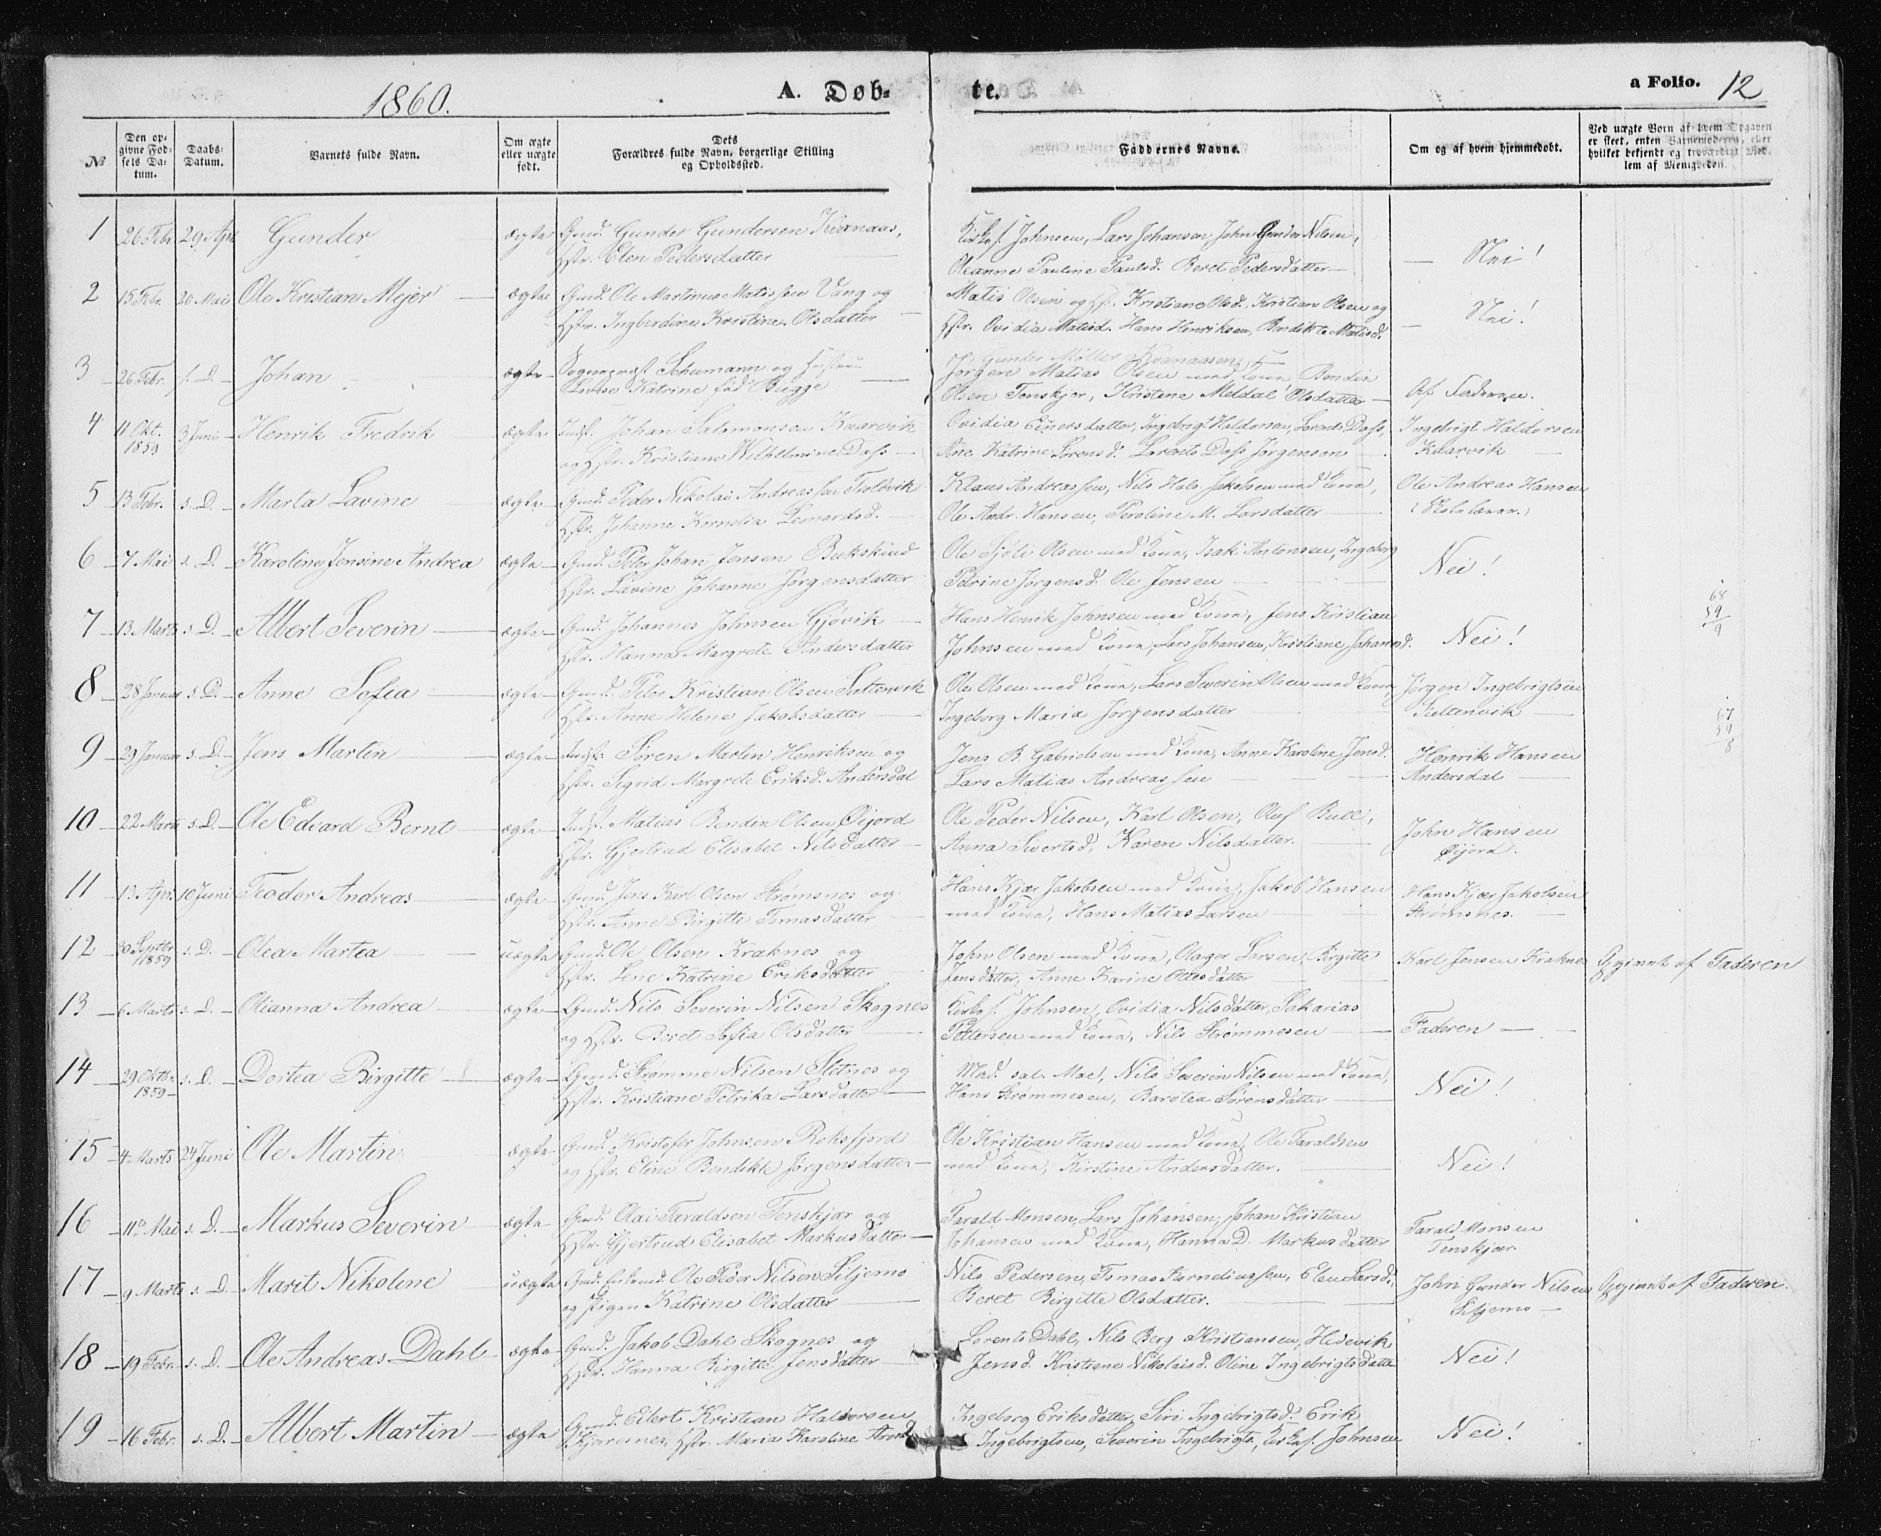 1860.
A. Døb-
te.
a Folio. 12
№
Den opgivne Fødsels Datum.
Daabs-Datum.
Barnets fulde Navn.
Om ægte eller uægte født.
Dets Forældres fulde Navn, borgerlige Stilling og Opholdssted.
Faddernes Navne.
Om og af hvem hjemmedøbt.
Ved uægte Børn af hvem Opgaven er skeet, enten Barnemoderen, eller hvilket bekjendt og troværdigt Medlem af Menigheden.
1 26 Febr 29 Apr Gunder ægte Gmd. Gunder Gundersen Kvanaas, Kirkes. Johnsen, Lars Johansen, John Gunder Nilsen, Nei!
Hstr. Elen Pedersdatter Oleanne Pauline Paulsd. Beret Pedersdatter
2 15 Febr. 20 Mai Ole Kristian Mejer ægte Gmd. Ole Martinus Matissen Vang og Matis Olsen og Hstr. Kristiane Olsd. Kristian Olsen og Nei!
Hstr. Ingberdine Kristine Olsdatter Hstr. Ovidia Matisd. Hans Henriksen, Bendikte Matisd.
3 26 Febr. s. D. Johan ægte Sogneprest Schumann og Hustru Gunder Møller Kvanaasen
Louise Katrine fød Bugge Jørgen Matias Olsen med Kone Bendin
Olsen Tenskjer, Kristine Meldal Olsdatter Af Faderen.
4 11 Okt. 1859 3 Juni Henrik Fredrik ægte Indst. Johan Salomonsen Kaarvik Ovidia Ejnersdatter, Ingebrigt Haldorsen, Lorents Dass, Ingebrigt Haldorsen
og Hstr. Kristiane Wilhelmine Dass Ane Katrine Lorensd. Lorents Dass Jørgensen Kaarvik
5 13 Febr. s. D. Marta Lavine ægte Gmd. Peder Nikolai Andreassen Toldvik Klaus Andreassen, Nils Hals Jakobsen med Kone, Ole Andreas Hansen
Hstr. Johanne Kornelia Leonardsd. Ole Andr. Hansen, Peroline M. Larsdatter (Skolelærer.)
6 7 Mai s. D. Karoline Jensine Andrea ægte Gmd. Peter Johan Jensen Bukskind Ole Sjøti Olsen med Kone, Isak Antonsen, Ingeborg Nei!
Hstr. Lavine Johanne Jørgensdatter Petrine Jørgensd. Ole Jensen
7 13 Marts s. D. Albert Severin ægte Gmd. Johannes Johnsen Gjøvik Hans Henrik Johnsen med Kone, Jens Kristian Nei! 68
Hstr. Hanna Margrete Andersdatter Johnsen med Kone, Lars Johansen, Kristiane Johannesd. 59
9
8 28 Januar s. D. Anne Sofia ægte Gmd. Peter Kristian Olsen Sultenvik Ole Olsen med Kone, Lars Severin Olsen med Kone, Jørgen Ingebrigtsen
Hstr. Anne Helene Jakobsdatter Ingeborg Maria Jørgensdatter Sultenvik 67
59
8
9 29 Januar s. D. Jens Martin ægte Indst. Søren Martin Henriksen og Jens B. Gabrielsen med Kone, Anne Karoline Jensd. Henrik Hansen
Hstr. Sigrid Margrete Eriksd. Andersdal Lars Matias Andreassen Andersdal
10 22 Marts s. D. Ole Edvard Bernt ægte Indst. Matias Bendin Olsen Øijord Ole Peder Nilsen, Karl Olsen, Oluf Bull, John Hansen
Hstr. Gjertrud Elisabet Nilsdatter Anna Sivertsd, Karen Nilsdatter. Øijord.
11 13 Apr. 10 Juni Teodor Andreas ægte Gmd. Jens Karl Olsen Strømsnes og Hans Kjær Jakobsen med Kone, Jakob Hansen Hans Kjær Jakobsen
Hstr. Anne Birgitte Tomasdatter med Kone, Hans Matias Larsen Strømsnes.
12 30 Septbr 1859 s. D. Olea Martea uægte Gmd. Ole Olsen Kraknes og John Olsen med Kone, Olager Larsen, Birgitte Karl Jensen Kraknes Opgivet af Faderen
Hstr. Lene Katrine Eriksdatter Jensdatter, Anne Karine Ottesdatter
13 6 Marts s. D. Olianna Andrea ægte Gmd. Nils Severin Nilsen Skognes Kirkes. Johnsen, Ovidia Nilsdatter, Sakarias
og Hstr. Beret Sofia Olsdatter Pettersen med Kone, Nils Strømmesen Faderen
14 29 Oktbr 1859 s. D. Dortea Birgitte ægte Gmd. Strømme Nilsen Sletnes og Mad. sal. Moe, Nils Severin Nilsen med Kone, Nei!
Hstr. Kristiane Petrika Larsdatter Hans Strømmesen, Barotea Sørensdatter
15 4 Marts 24 June Ole Martin ægte Gmd. Kristofer Johnsen Roksfjord Ole Kristian Hansen med Kone, Ole Taraldsen Nei!
og Hstr. Eline Bendikte Jørgensdatter med Kone, Kirstine Andersdatter.
16 11te Mai s. D. Markus Severin ægte Gmd. Olai Taraldsen Tenskjær og Tarald Monsen, Lars Johansen, Johan Kristian Tarald Monsen
Hstr. Gjertrud Elisabet Markusdatter Johansen med Kone, Hanna D. Markusdatter Tenskjær
17 9 Marts s. D. Marit Nikoline uægte Gmd. Enkemd. Ole Peder Nilsen Siljemo Nils Pedersen, Tomas Korneliussen, Elen Larsd., John Gunder Nilsen Opgivet af Faderen.
og Pigen Katrine Olsdatter Beret Birgitte Olsdatter. Siljemo
18 19 Febr. s. D. Ole Andreas Dahl ægte Gmd. Jakob Dahl Skognes og Lorents Dahl, Nils Berg Kristiansen, Hedevik Nei!
Hstr. Hanna Birgitte Jensdatter Jensd. Kristine Nikolaisd. Oline Ingebrigtsdatter
19 16 Febr. s. D. Albert Martin ægte Gmd. Eilert Kristian Haldorsen Ingeborg Eriksdatter, Siri Ingebrigtsd. Erik Nei!
Hstr. Maria Karoline Aronsd. Ingebrigtsen, Severin Ingebrigts., Kirkes. Johnsen